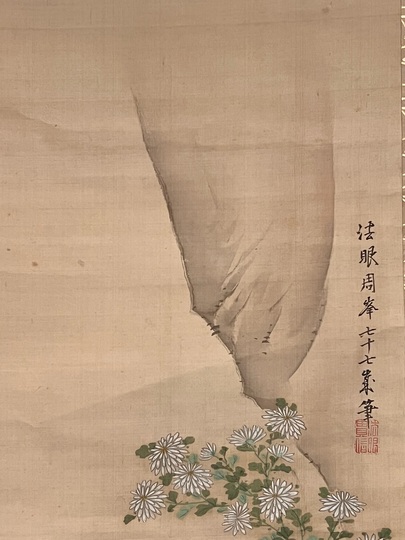 法眼周峯七十七歳筆